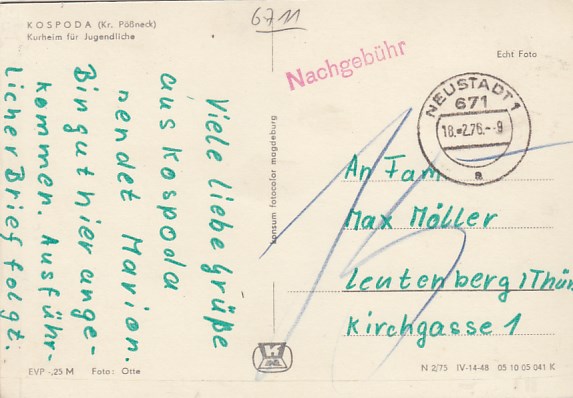 KOSPODA (Kr. Pößneck)
Kurheim für Jugendliche
6711
Nachgebühr
Echt Foto
NEUSTADT 1
671
18.-2.76.--9
a
Viele liebe Grüße
aus Kospoda
sendet Marion.
Bin gut hier ange-
kommen. Ausführ-
licher Brief folgt.
konsum fotocolor magdeburg
An Fam.
Max Möller
Leutenberg / Thür
Kirchgasse 1
15
EVP -,25 M Foto: Otte
K
N 2/75 IV-14-48 05 10 05 041 K